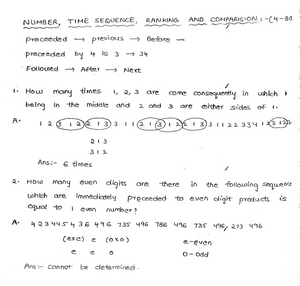 NUMBER, TIME SEQUENCE, RANKING AND COMPARISION :-
preceeded → previous → Before
preceeded by 4 is 3 → 34
Followed → After → Next
1. How many times 1, 2, 3 are come consequently in which 1
being in the middle and 2 and 3 are either sides of 1.
A. 1 2 3 1 2 2 1 3 3 1 1 2 1 3 1 2 2 1 3 3 1 1 2 2 3 3 4 1 2 3 1 2
2 1 3
3 1 2
Ans:- 6 times
2. How many even digits are there in the following sequence
which are immediately preceeded to even digit products is
equal to 1 even number?
A. 4 2 3 4 4 5 4 3 6 4 9 6 735 496 786 496 735 496, 273 496
(exe) e (oxo) e-even
e e o o-odd
Ans:- cannot be determined.